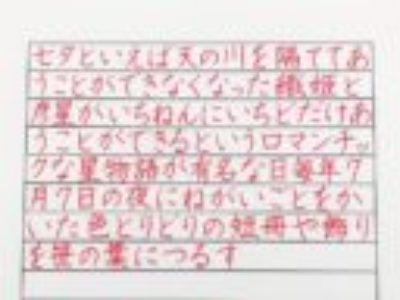 七夕といえば天の川を隔ててあ
うことができなくなった織姫と
彦星がいちねんにいちどだけあ
うことができるというロマンチッ
クな星物語が有名な日毎年7
月7日の夜にねがいごとをか
いた色とりどりの短冊や飾り
を笹の葉につるす